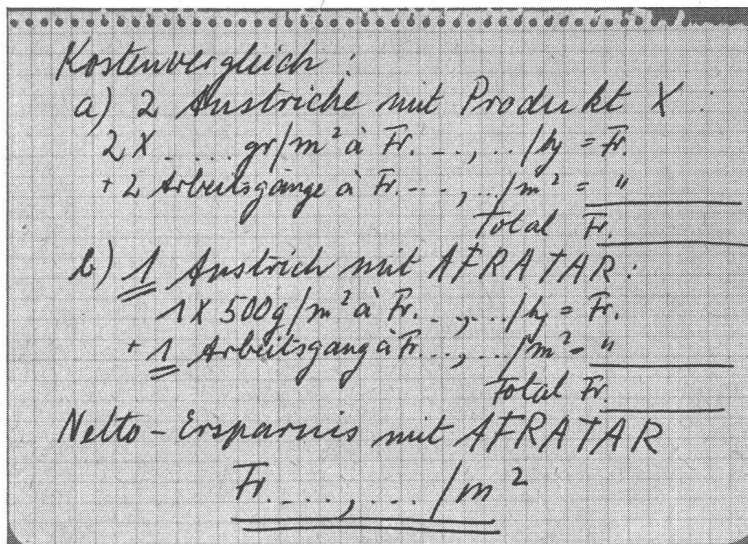 Kostenvergleich:
a) 2 Anstriche mit Produkt X:
2X .... gr/m² à Fr. ..,../kg = Fr.
+ 2 Arbeitsgänge à Fr. ..,../m² = "
Total Fr.
b) 1 Anstrich mit AFRATAR:
1X 500g/m² à Fr. ..,../kg = Fr.
+ 1 Arbeitsgang à Fr. ..,../m² = "
Total Fr.
Netto-Ersparnis mit AFRATAR
Fr. ...,.../m²